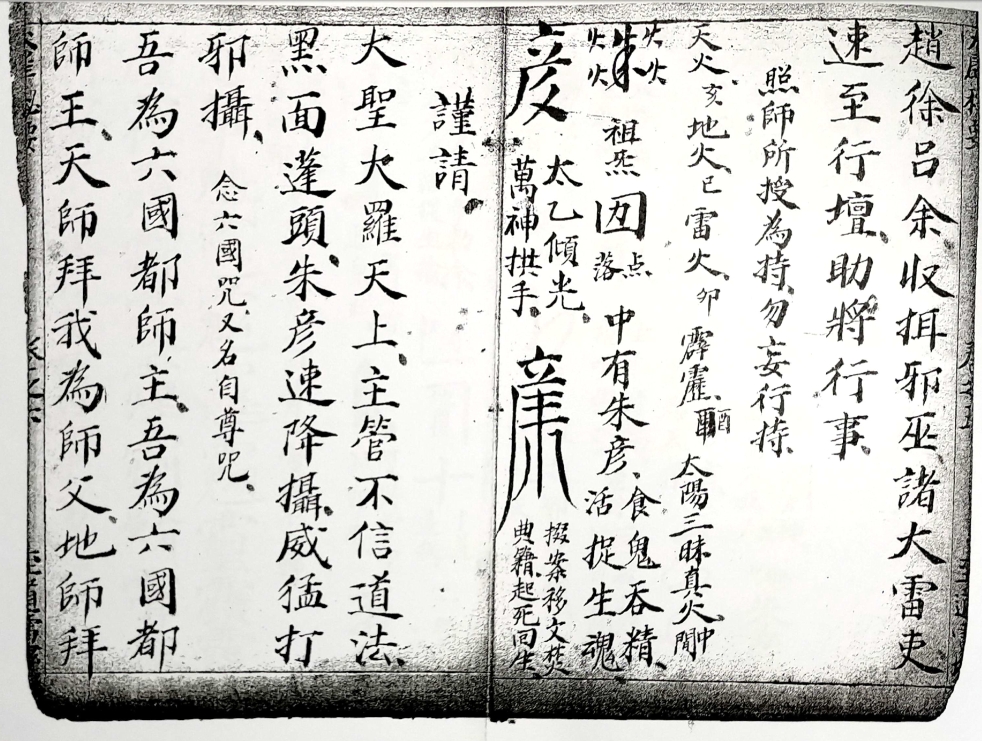 趙徐呂余收捉邪巫諸大雷吏
速至行壇助將行事
照師所授為持勿妄行持
天火亥地火巳雷火卯霹靂酉太陽三昧真火中間
火火朱火火
祖炁
落点
中有朱彥食鬼吞精
活捉生魂
彥
太乙傾光
萬神拱手
掇案移文焚
典籍起死回生
謹請
大聖大羅天上主管不信道法
黑面蓬頭朱彥速降攝威猛打
邪攝
念六國咒又名自尊咒
吾為六國都師主吾為六國都
師王天師拜我為師父地師拜